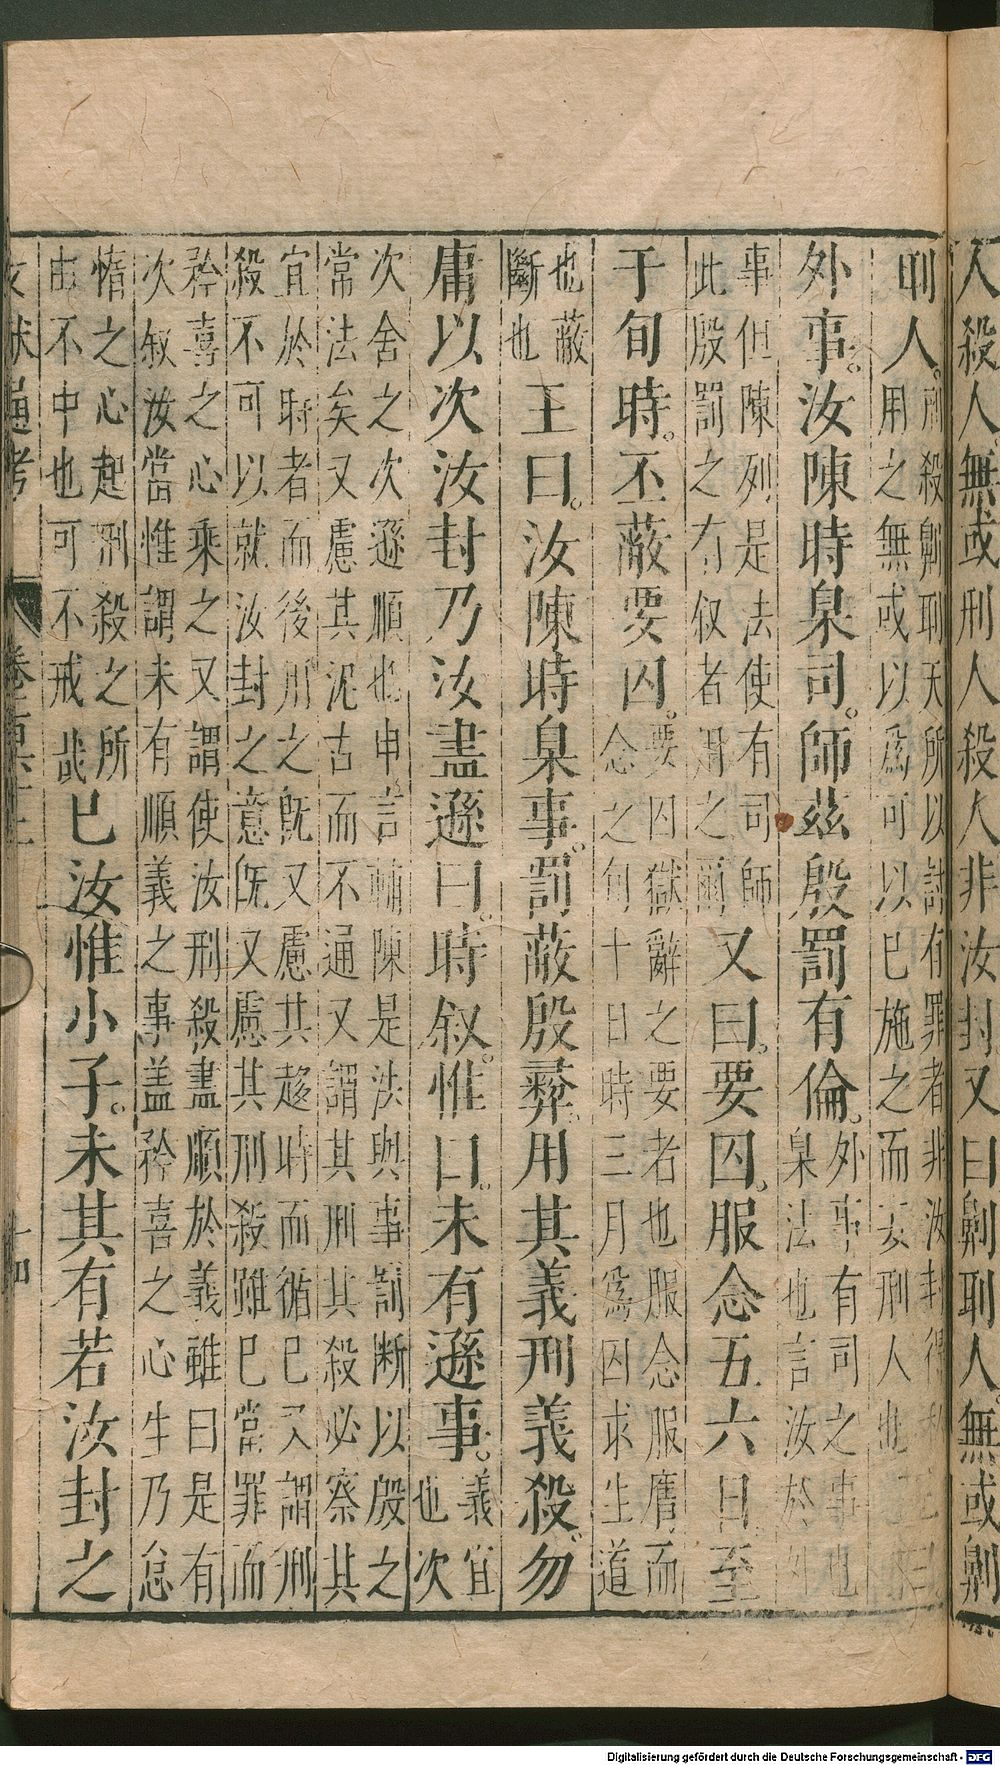 人殺人無或刑人殺人非汝封又曰劓刵人無或劓
刵人。刑殺劓刵天所以討有罪者非汝封得
用之無或以爲可以已施之而妄刑人也
外事。汝陳時臬司。師茲殷罰有倫。外事有司之事也
臬法也言汝於外
事但陳列是法使有司師
此殷罰之有叙者用之爾又曰。要囚。服念五六日至
于旬時。丕蔽要囚。要囚獄辭之要者也服念服膺而
念之旬十日時三月爲囚求生道
也蔽
斷也王曰。汝陳時臬事。罰蔽殷彛。用其義刑義殺。勿
庸以次汝封乃汝盡遜曰。時叙。惟曰。未有遜事。義宜
也次
次舍之次遜順也申言輔陳是法與事罰斷以殷之
常法矣又慮其泥古而不通又謂其刑其殺必察其
宜於時者而後用之旣又慮其趍時而循已又謂刑
殺不可以就汝封之意旣又慮其刑殺雖已當罪而
矜喜之心乘之又謂使汝刑殺盡順於義雖曰是有
次叙汝當惟謂未有順義之事盖矜喜之心生乃怠
惰之心起刑殺之所
由不中也可不戒哉已汝惟小子。未其有若汝封之
文獻通考
Digitalisierung gefördert durch die Deutsche Forschungsgemeinschaft - DFG